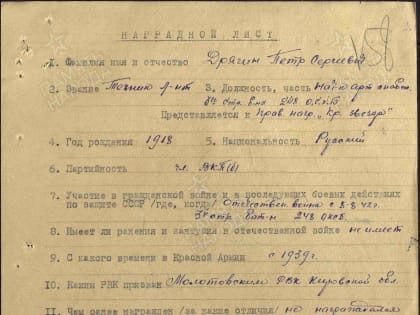 НАГРАДНОЙ ЛИСТ
1. Фамилия имя и отчество Дрягин Петр Сергеевич
2. Звание Техник л-нт 3. Должность, часть Нач-к арт снабж.
3й стр. б-на 248 О.С.К.Б
Представляется к Прав. нагр. "Кр. звезда"
4. Год рождения 1918 5. Национальность Русский
6. Партийность чл. ВКП(б)
7. Участие в гражданской войне и в последующих боевых действиях
по защите СССР /где, когда/ Отечествен. война с 8-8 42г.
3й стр. бат-н 248 ОКСБ.
8. Имеет ли ранения и контузии в отечественной войне не имеет
9. С какого времени в Красной Армии с 1939г.
10. Каким РВК призван Молотовским РВК Кировской обл.
11. Чем ранее награжден /за какие отличия/ не награждался